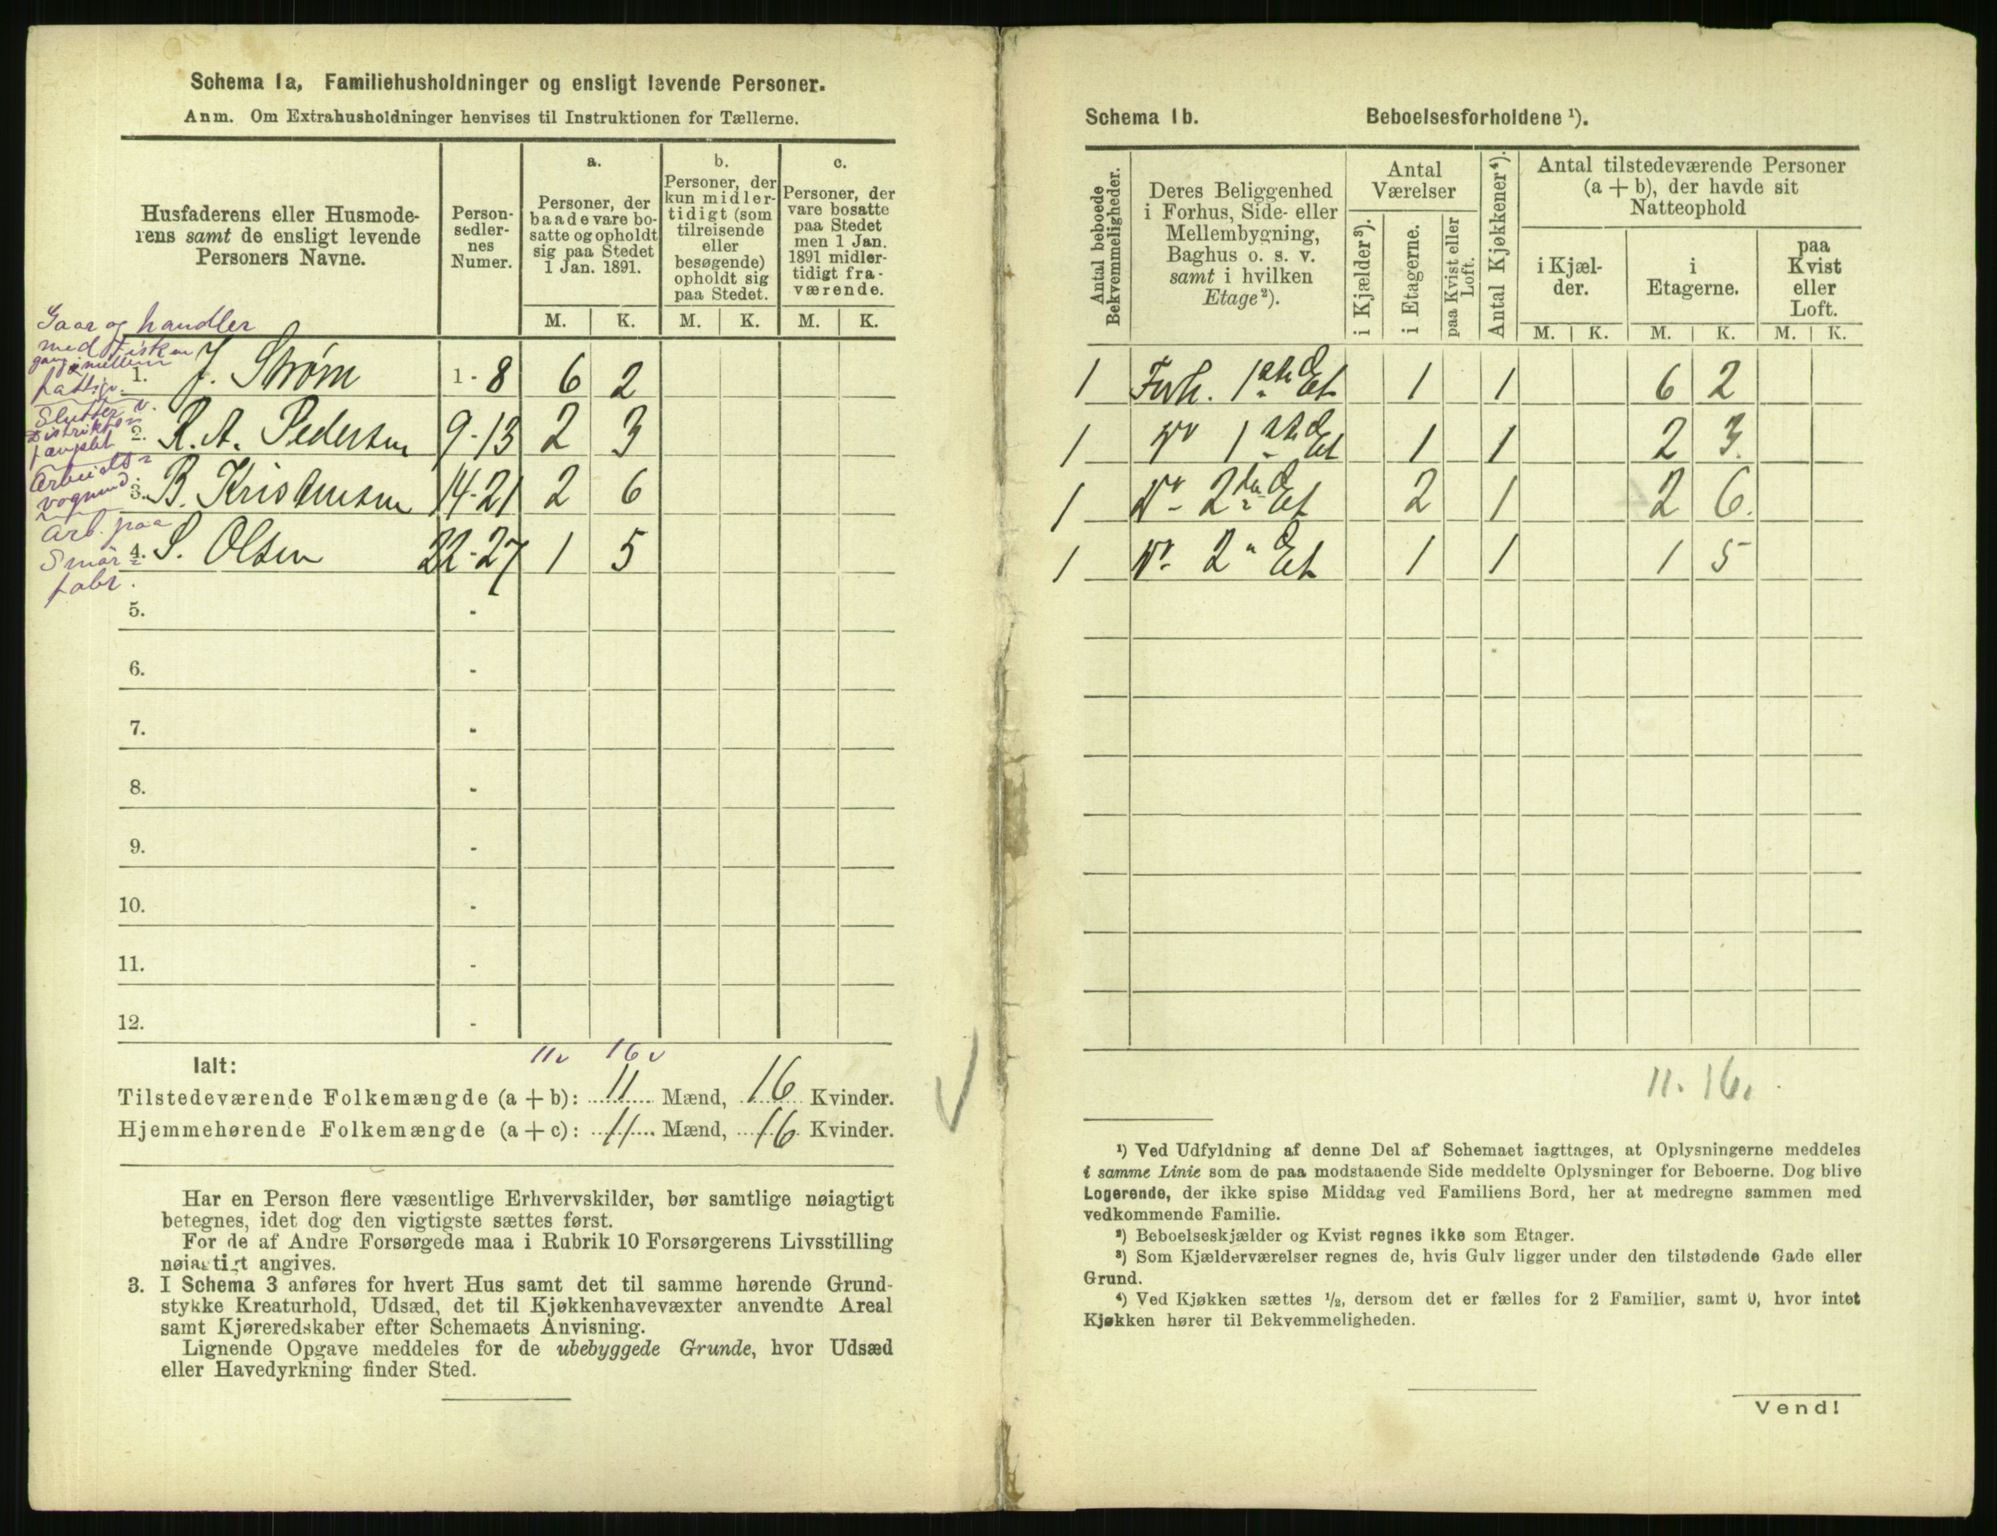 Schema 1a, Familiehusholdninger og ensligt levende Personer.
Anm. Om Extrahusholdninger henvises til Instruktionen for Tællerne.
Husfaderens eller Husmode-
rens samt de ensligt levende
Personers Navne.
Person-
sedler-
nes
Numer.
a.
Personer, der
baade vare bo-
satte og opholdt
sig paa Stedet
1 Jan. 1891.
b.
Personer, der
kun midler-
tidigt (som
tilreisende
eller
besøgende)
opholdt sig
paa Stedet.
c.
Personer, der
vare bosatte
paa Stedet
men 1 Jan.
1891 midler-
tidigt fra-
værende.
M. K. M. K. M. K.
Gaar og handler
med Fisken
gang imellem
fattigv.
1. J. Strøm 1-8 6 2
Slutter v.
Distrikts
fængslet
2. R. A. Pedersen 9-13 2 3
Arbeids
vogmnd.
3. B. Kristensen 14-21 2 6
Arb. paa
Smør
fabr.
4. S. Olsen 22-27 1 5
5. -
6. -
7. -
8. -
9. -
10. -
11. -
12. -
11 v 16 v
Ialt:
Tilstedeværende Folkemængde (a + b): 11 Mænd, 16 Kvinder.
Hjemmehørende Folkemængde (a + c): 11 Mænd, 16 Kvinder.
Har en Person flere væsentlige Erhvervskilder, bør samtlige nøiagtigt
betegnes, idet dog den vigtigste sættes først.
For de af Andre Forsørgede maa i Rubrik 10 Forsørgerens Livsstilling
nøiagtigt angives.
3. I Schema 3 anføres for hvert Hus samt det til samme hørende Grund-
stykke Kreaturhold, Udsæd, det til Kjøkkenhavevæxter anvendte Areal
samt Kjøreredskaber efter Schemaets Anvisning.
Lignende Opgave meddeles for de ubebyggede Grunde, hvor Udsæd
eller Havedyrkning finder Sted.
Schema 1b. Beboelsesforholdene ¹).
Antal beboede
Bekvemmeligheder.
Deres Beliggenhed
i Forhus, Side- eller
Mellembygning,
Baghus o. s. v.
samt i hvilken
Etage²).
Antal
Værelser
i Kjælder³).
i Etagerne.
paa Kvist eller
Loft.
Antal Kjøkkener⁴).
Antal tilstedeværende Personer
(a + b), der havde sit
Natteophold
i Kjæl-
der.
i
Etagerne.
paa
Kvist
eller
Loft.
M. K. M. K. M. K.
1 Forh. 1ste Et 1 1 6 2
1 " 1ste Et 1 1 2 3.
1 " 2den Et 2 1 2 6.
1 " 2 " Et 1 1 1 5
11. 16.
¹) Ved Udfyldning af denne Del af Schemaet iagttages, at Oplysningerne meddeles
i samme Linie som de paa modstaaende Side meddelte Oplysninger for Beboerne. Dog blive
Logerende, der ikke spise Middag ved Familiens Bord, her at medregne sammen med
vedkommende Familie.
²) Beboelseskjælder og Kvist regnes ikke som Etager.
³) Som Kjælderværelser regnes de, hvis Gulv ligger under den tilstødende Gade eller
Grund.
⁴) Ved Kjøkken sættes ½, dersom det er fælles for 2 Familier, samt 0, hvor intet
Kjøkken hører til Bekvemmeligheden.
Vend!